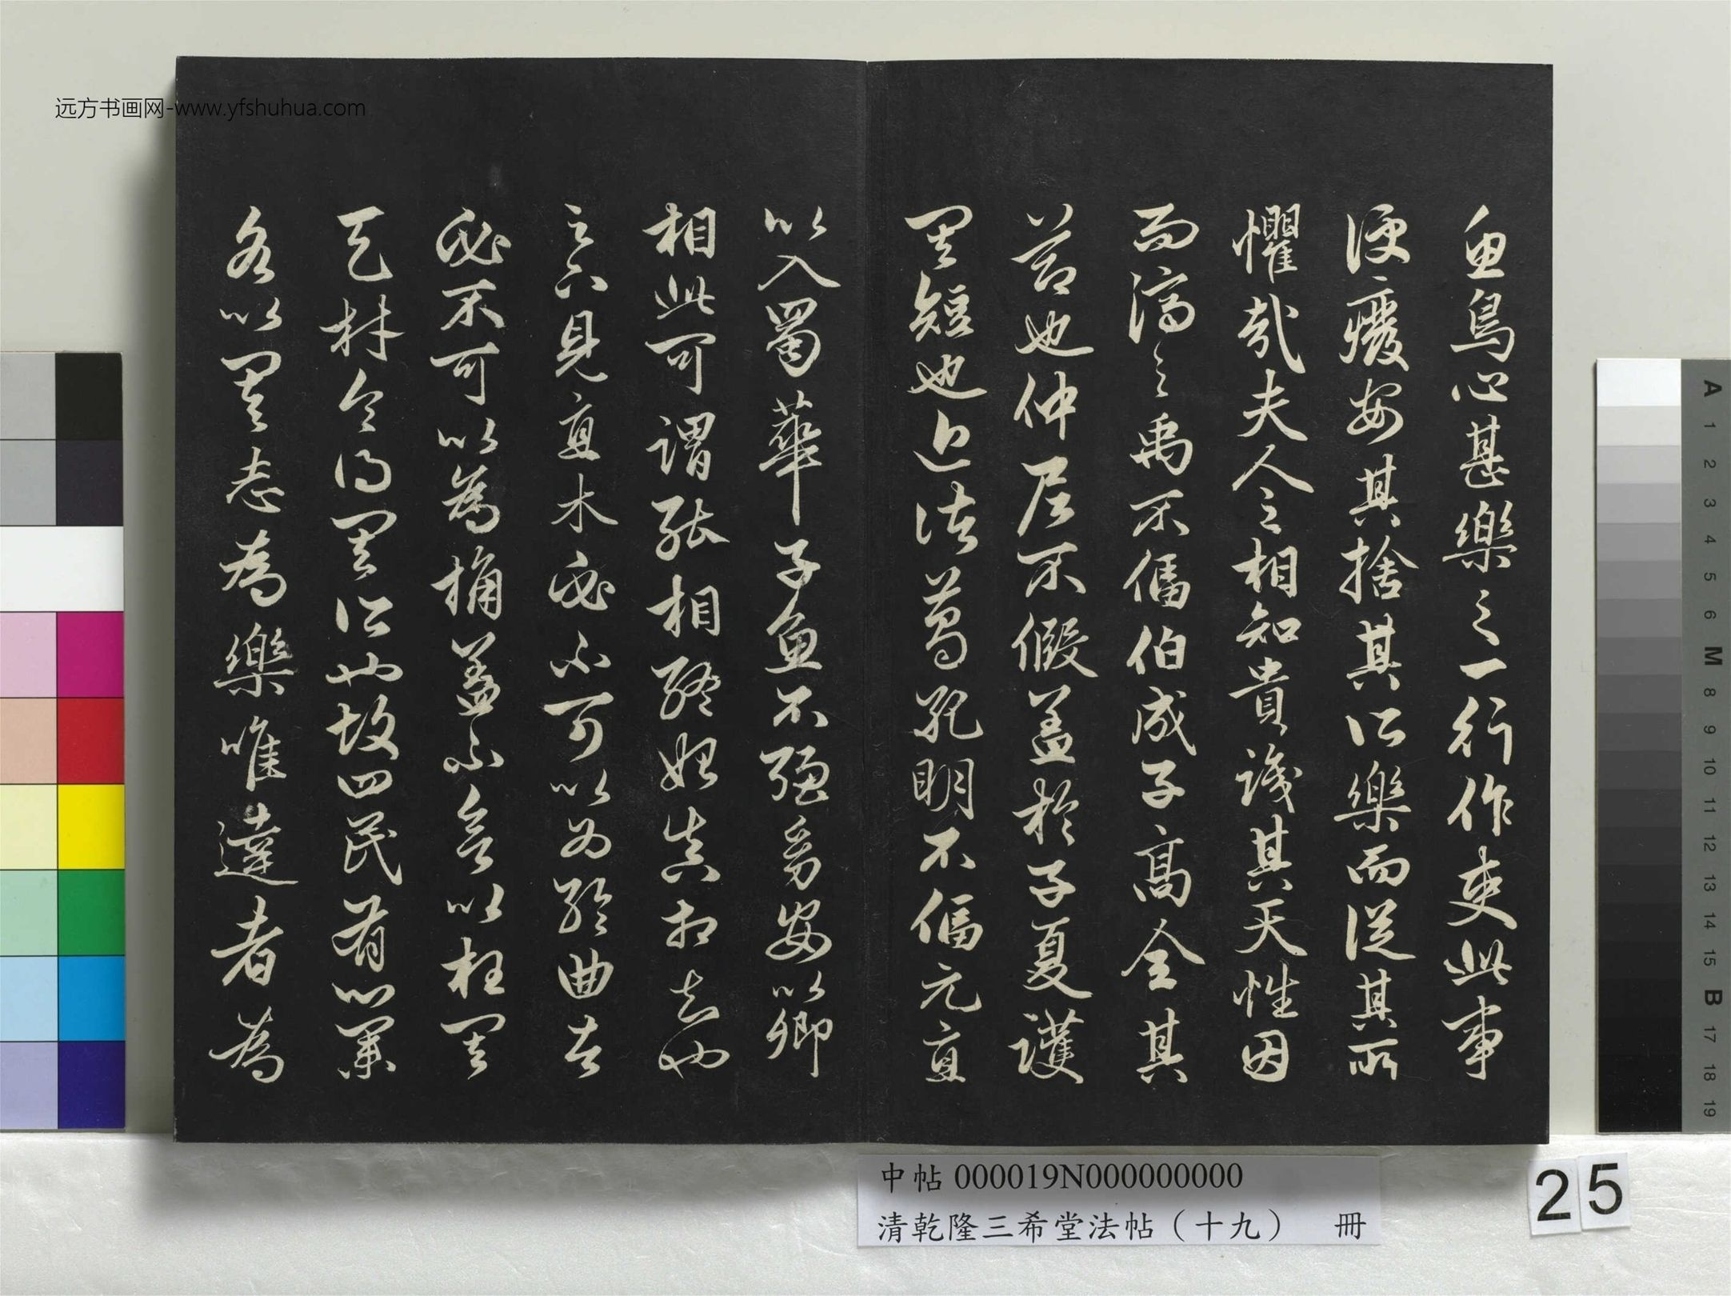 远方书画网-www.yfshuhua.com
魚鳥心甚樂之一行作吏此事
便癈安其捨其所樂而從其所
懼哉夫人之相知貴識其天性因
而濟之禹不偪伯成子高全其
節也仲尼不假蓋於子夏護
其短也近諸葛孔明不偪元直
以入蜀華子魚不强幼安以卿
相此可謂能相終始真相知也
足下見直木必不可以為輪曲者
必不可以為桷蓋不欲以枉其
天材令得其所也故四民有業
各以其志為樂唯達者為
中帖 000019N000000000
清乾隆三希堂法帖（十九） 冊
25
A 1 2 3 4 5 6 M 8 9 10 11 12 13 14 15 B 17 18 19